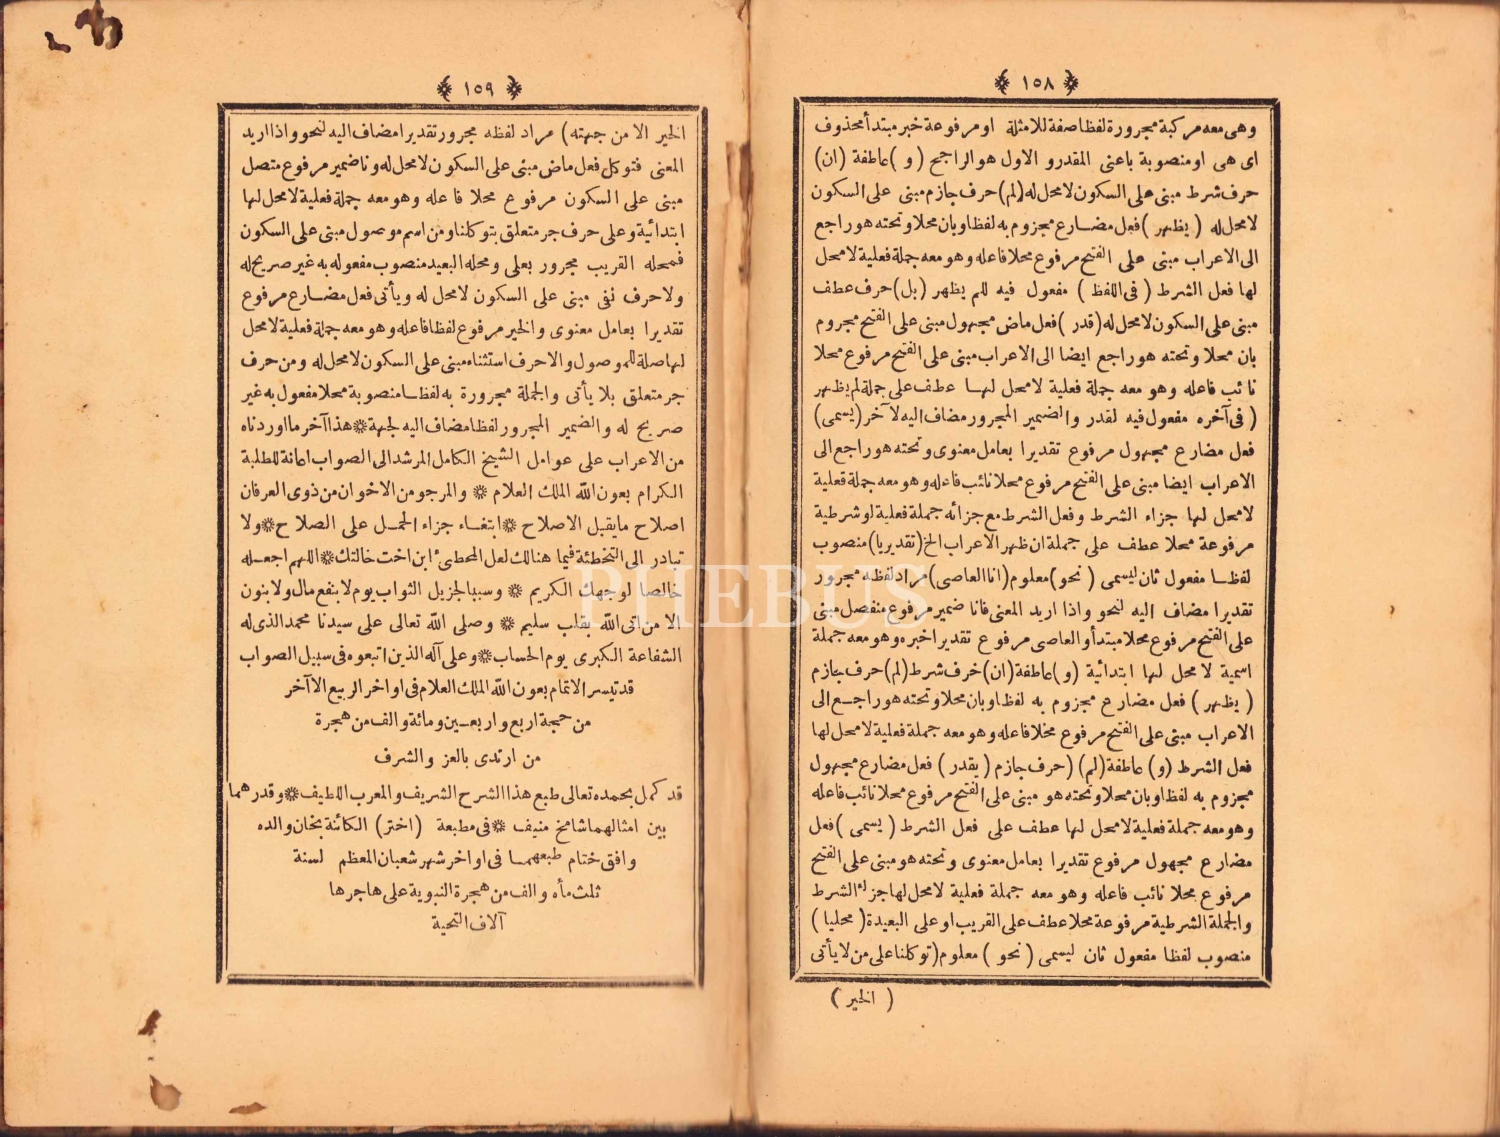 ﴿ ١٥٨ ﴾
وهى معه مركبة مجرورة لفظا صفة للامثلة او مرفوعة خبر مبتدأ محذوف
اى هى او منصوبة باعنى المقدر و الاول هو الراجح ( و ) عاطفة (ان)
حرف شرط مبنى على السكون لا محل له (لم) حرف جازم مبنى على السكون
لا محل له ( يظهر ) فعل مضارع مجزوم به لفظا وبان محلا وتحته هو راجع
الى الاعراب مبنى على الفتح مرفوع محلا فاعله وهو معه جملة فعلية لا محل
لها فعل الشرط ( فى اللفظ ) مفعول فيه للم يظهر (بل) حرف عطف
مبنى على السكون لا محل له (قدر ) فعل ماض مجهول مبنى على الفتح مجزوم
بان محلا وتحته هو راجع ايضا الى الاعراب مبنى على الفتح مرفوع محلا
نائب فاعله وهو معه جملة فعلية لا محل لها عطف على جملة لم يظهر
( فى آخره مفعول فيه لقدر والضمير المجرور مضاف اليه لآخر (يسمى)
فعل مضارع مجهول مرفوع تقديرا بعامل معنوى وتحته هو راجع الى
الاعراب ايضا مبنى على الفتح مرفوع محلا نائب فاعله وهو معه جملة فعلية
لا محل لها جزاء الشرط وفعل الشرط مع جزائه جملة فعلية او شرطية
مرفوعة محلا عطف على جملة ان ظهر الاعراب الخ (تقديريا) منصوب
لفظا مفعول ثان ليسمى ( نحو) معلوم (انا العاصى) مراد لفظه مجرور
تقديرا مضاف اليه لنحو واذا اريد المعنى فانا ضمير مرفوع منفصل مبنى
على الفتح مرفوع محلا مبتدأ و العاصى مرفوع تقديرا خبره وهو معه جملة
اسمية لا محل لها ابتدائية (و) عاطفة (ان) حرف شرط (لم) حرف جازم
( يظهر ) فعل مضارع مجزوم به لفظا وبان محلا وتحته هو راجع الى
الاعراب مبنى على الفتح مرفوع محلا فاعله وهو معه جملة فعلية لا محل لها
فعل الشرط (و) عاطفة (لم) (حرف جازم ( يقدر ) فعل مضارع مجهول
مجزوم به لفظا وبان محلا وتحته هو مبنى على الفتح مرفوع محلا نائب فاعله
وهو معه جملة فعلية لا محل لها عطف على فعل الشرط ( يسمى ) فعل
مضارع مجهول مرفوع تقديرا بعامل معنوى وتحته هو مبنى على الفتح
مرفوع محلا نائب فاعله وهو معه جملة فعلية لا محل لها جزاء الشرط
والجملة الشرطية مرفوعة محلا عطف على القريب او على البعيدة ( محليا )
منصوب لفظا مفعول ثان ليسمى ( نحو ) معلوم (توكلنا على من لا يأتى
( الخير )
﴿ ١٥٩ ﴾
الخير الا من جهته) مراد لفظه مجرور تقديرا مضاف اليه لنحو واذا اريد
المعنى فتوكل فعل ماض مبنى على السكون لا محل له ونا ضمير مرفوع متصل
مبنى على السكون مرفوع محلا فاعله وهو معه جملة فعلية لا محل لها
ابتدائية وعلى حرف جر متعلق بتوكلنا ومن اسم موصول مبنى على السكون
فمحله القريب مجرور بعلى ومحله البعيد منصوب مفعوله به غير صريح له
ولا حرف نفى مبنى على السكون لا محل له ويأتى فعل مضارع مرفوع
تقديرا بعامل معنوى والخير مرفوع لفظا فاعله وهو معه جملة فعلية لا محل
لها صلة للموصول والا حرف استثناء مبنى على السكون لا محل له ومن حرف
جر متعلق بلا يأتى والجملة مجرورة به لفظا منصوبة محلا مفعول به غير
صريح له والضمير المجرور لفظا مضاف اليه لجهة ❊ هذا آخر ما اوردناه
من الاعراب على عوامل الشيخ الكامل المرشد الى الصواب اعانة للطلبة
الكرام بعون الله الملك العلام ❊ والمرجو من الاخوان من ذوى العرفان
اصلاح ما يقبل الاصلاح ❊ ابتغاء جزاء الحمل على الصلاح ❊ ولا
تبادر الى التخطئة فيما هنالك لعل المخطئ ابن اخت خالتك ❊ اللهم اجعله
خالصا لوجهك الكريم ❊ وسببا لجزيل الثواب يوم لا ينفع مال ولا بنون
الا من اتى الله بقلب سليم ❊ وصلى الله تعالى على سيدنا محمد الذى له
الشفاعة الكبرى يوم الحساب ❊ وعلى آله الذين اتبعوه فى سبيل الصواب
قد تيسر الاتمام بعون الله الملك العلام فى اواخر الربيع الآخر
من حجة اربع واربعين ومائة والف من هجرة
من ارتدى بالعز والشرف
قد كمل بحمده تعالى طبع هذا الشرح الشريف والمعرب اللطيف ❊ وقدرهما
بين امثالهما شامخ منيف ❊ فى مطبعة (اختر) الكائنة بخان والده
وافق ختام طبعهما فى اواخر شهر شعبان المعظم لسنة
ثلث مأه والف من هجرة النبوية على هاجرها
آلاف التحية
PHEBUS